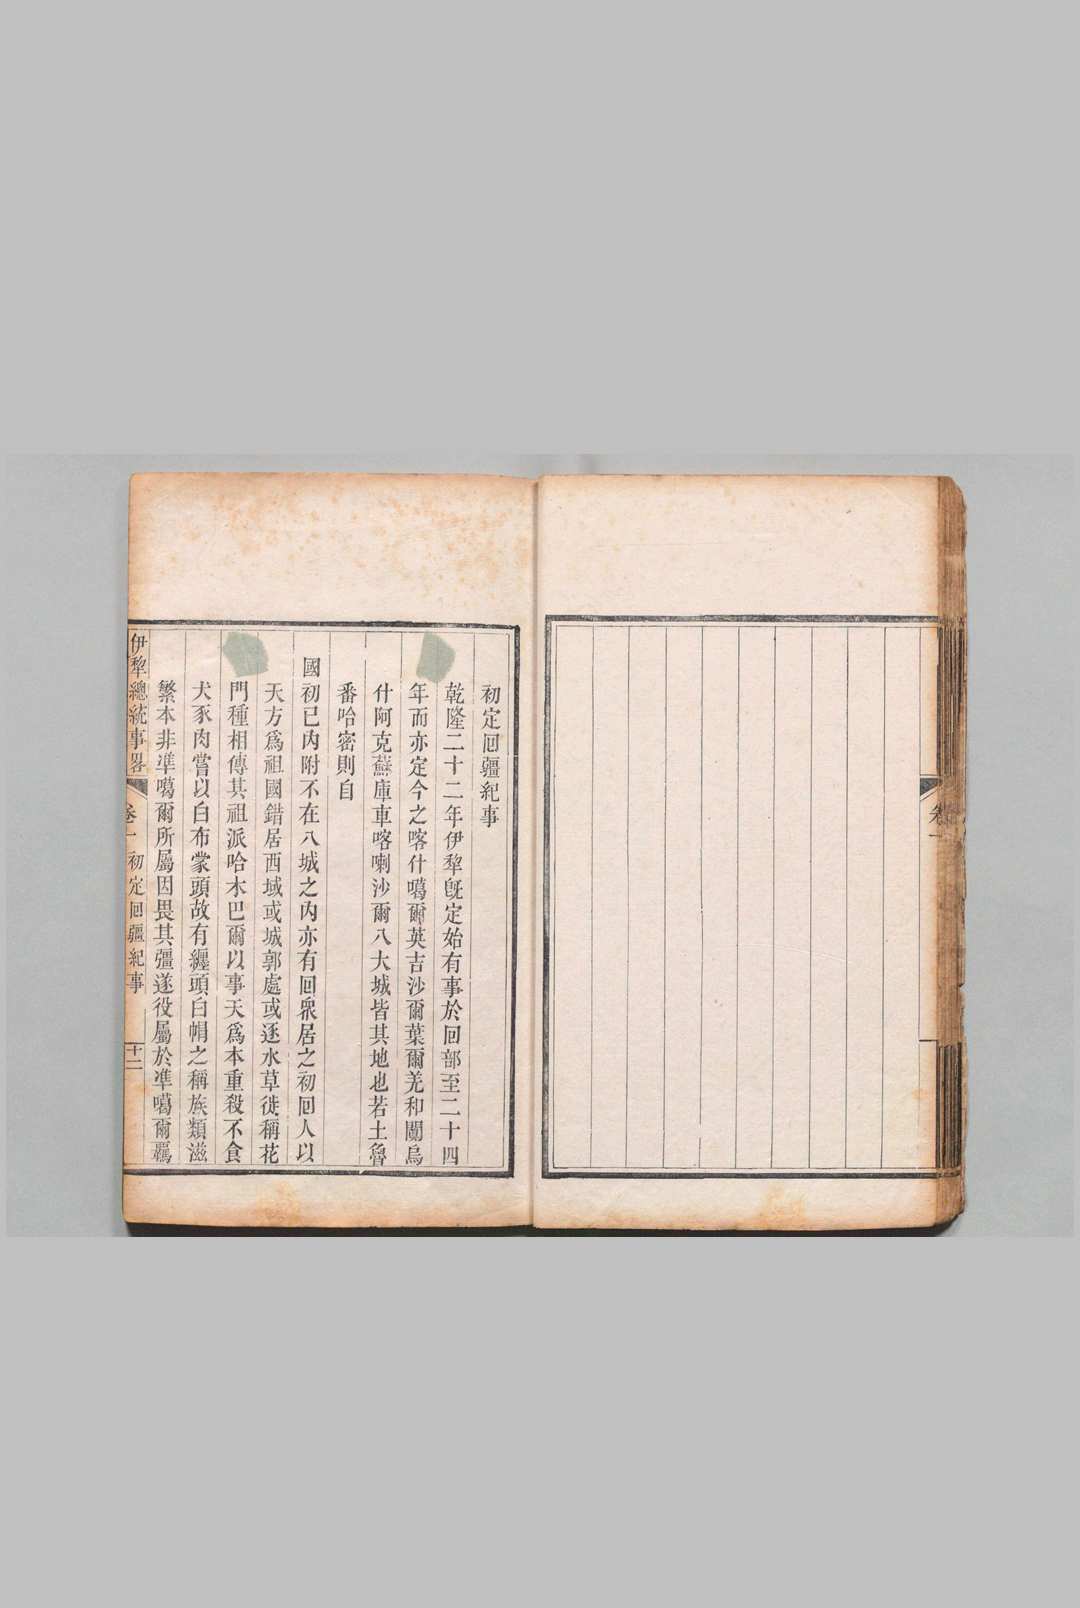 初定囘疆紀事
乾隆二十二年伊犂旣定始有事於回部至二十四
年而亦定今之喀什噶爾英吉沙爾葉爾羌和闐烏
什阿克蘇庫車喀喇沙爾八大城皆其地也若土魯
番哈密則自
國初已内附不在八城之内亦有囘衆居之初囘人以
天方爲祖國錯居西域或城郭處或逐水草徙稱花
門種相傳其祖派哈木巴爾以事天爲本重殺不食
犬豕肉嘗以白布蒙頭故有纏頭白帽之稱族類滋
繁本非準噶爾所屬因畏其彊遂役屬於準噶爾羈
伊犂總統事畧 卷一 初定囘疆紀事 十二
卷一